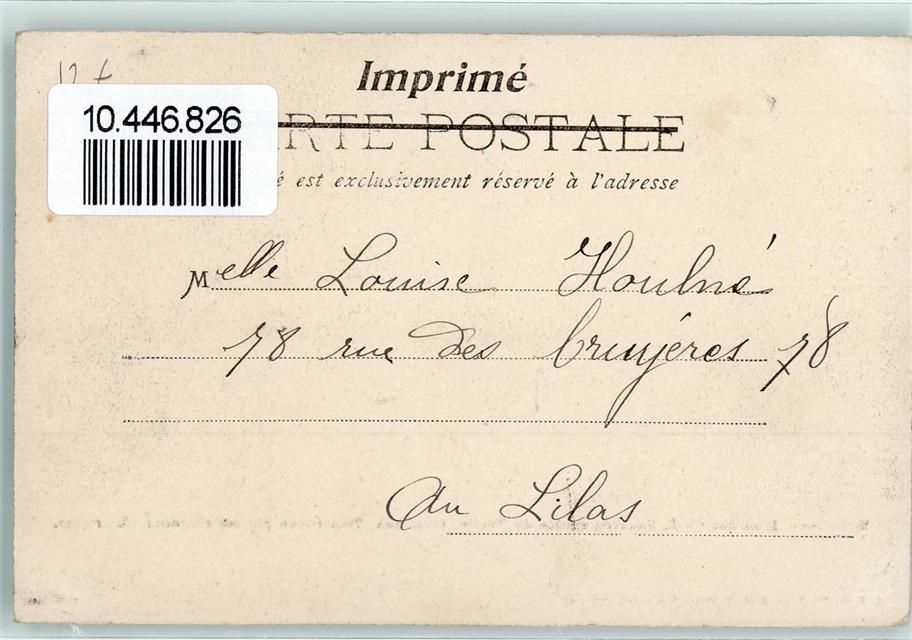 12 f
Imprimé
10.446.826
RTE POSTALE
é est exclusivement réservé à l'adresse
Melle Louise Houlné
78 rue des bruyéres 78
au Lilas